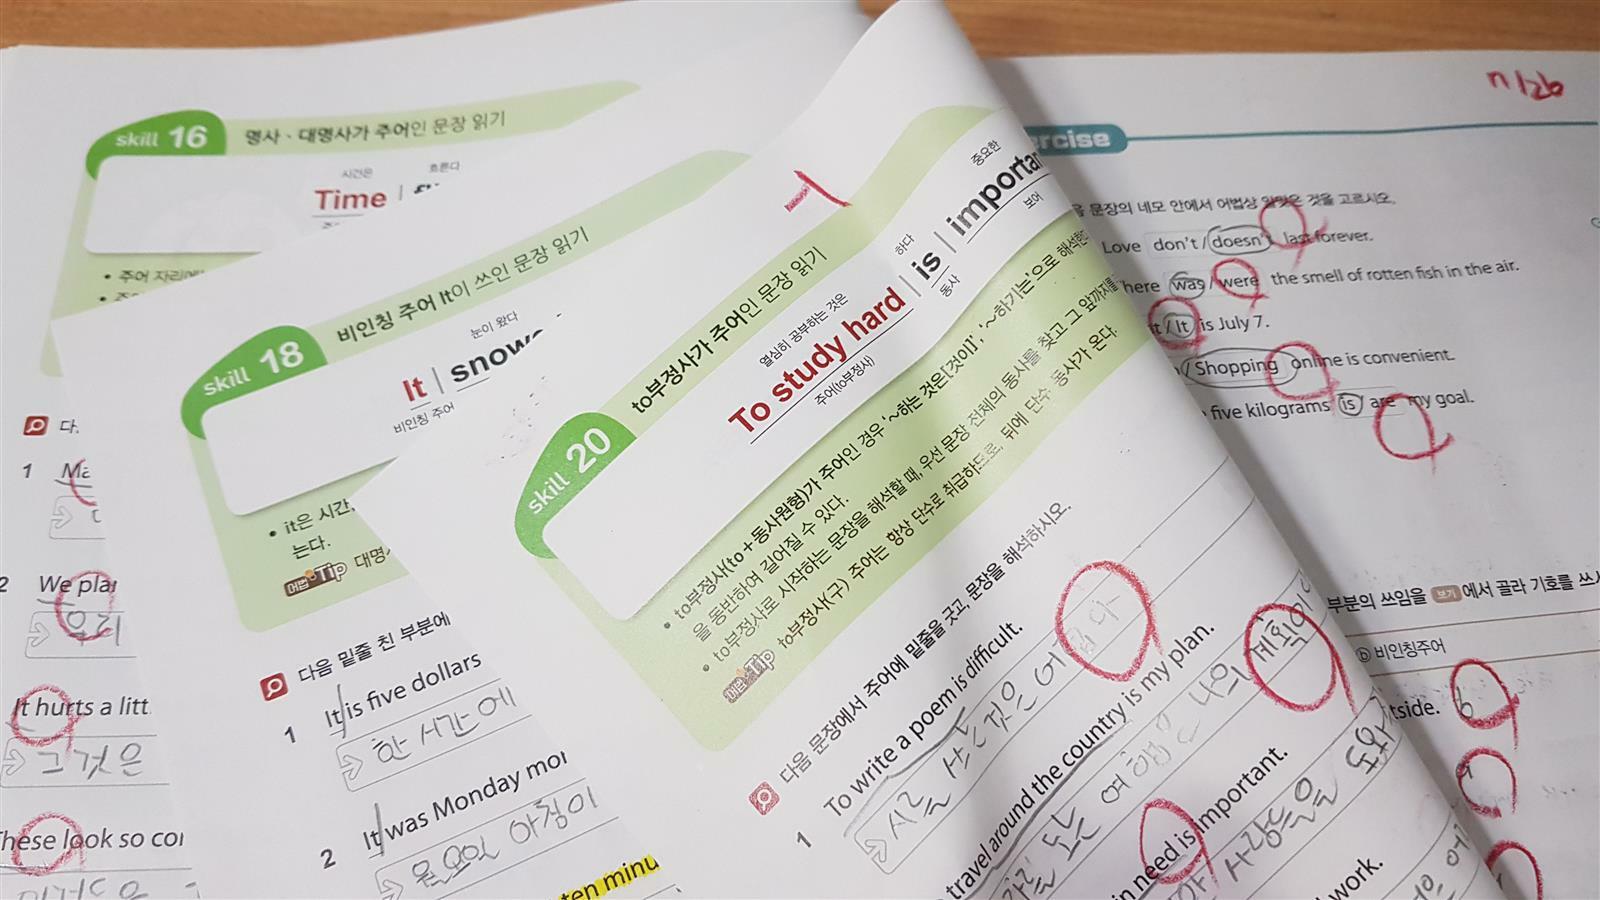 skill 16
명사 · 대명사가 주어인 문장 읽기
시간은
흐른다
Time
• 주어 자리에
다
1
2 We plan
우리
It hurts a litt
그것은
These look so co
skill 18
비인칭 주어 It이 쓰인 문장 읽기
눈이 왔다
It | snowe
비인칭 주어
• it은 시간,
는다.
어법 Tip 대명사
다음 밑줄 친 부분에
1 It is five dollars
한 시간에
2 It was Monday mor
월요일 아침이
ten minu
skill 20
to부정사가 주어인 문장 읽기
열심히 공부하는 것은
하다
중요한
To study hard | is | importan
주어(to부정사)
동사
보어
• to부정사(to + 동사원형)가 주어인 경우 '~하는 것은[것이]', '~하기는'으로 해석한
을 동반하여 길어질 수 있다.
• to부정사로 시작하는 문장을 해석할 때, 우선 문장 전체의 동사를 찾고 그 앞까지를
어법 Tip to부정사(구) 주어는 항상 단수로 취급하므로, 뒤에 단수 동사가 온다.
다음 문장에서 주어에 밑줄을 긋고, 문장을 해석하시오.
1 To write a poem is difficult.
시를 쓰는 것은
travel around the country is my plan.
도는 여행은 나의 계획이
in need is important.
사람들을
work.
rcise
문장의 네모 안에서 어법상 알맞은 것을 고르시오.
Love don't / doesn't last forever.
here was / were the smell of rotten fish in the air.
t / It is July 7.
/ Shopping online is convenient.
five kilograms is / are my goal.
부분의 쓰임을 보기 에서 골라 기호를 쓰시
ⓑ 비인칭주어
tside. b